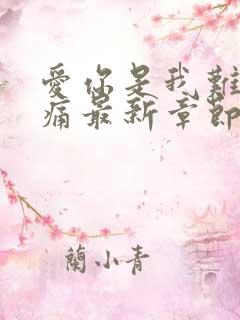 愛你是我難
痛最新章節
蘭小青